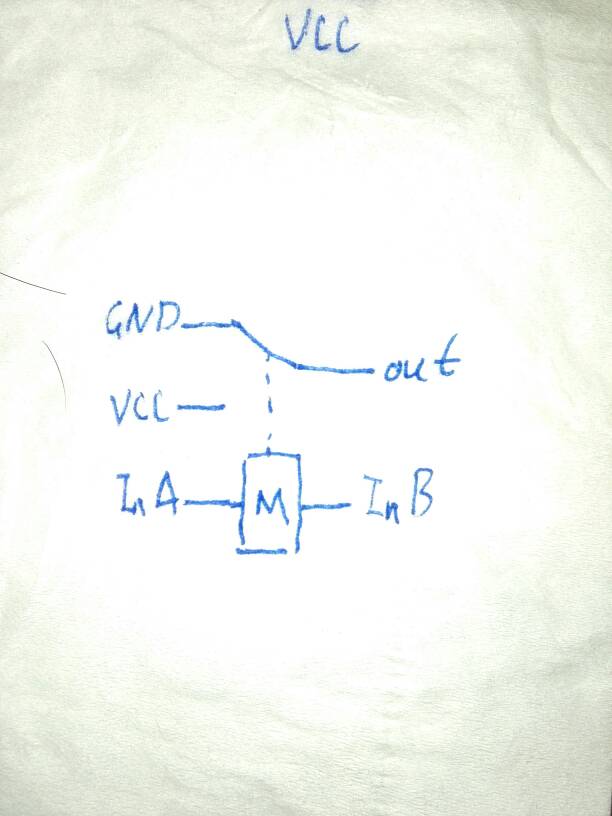 VCC
GND
out
VCC
InA M InB